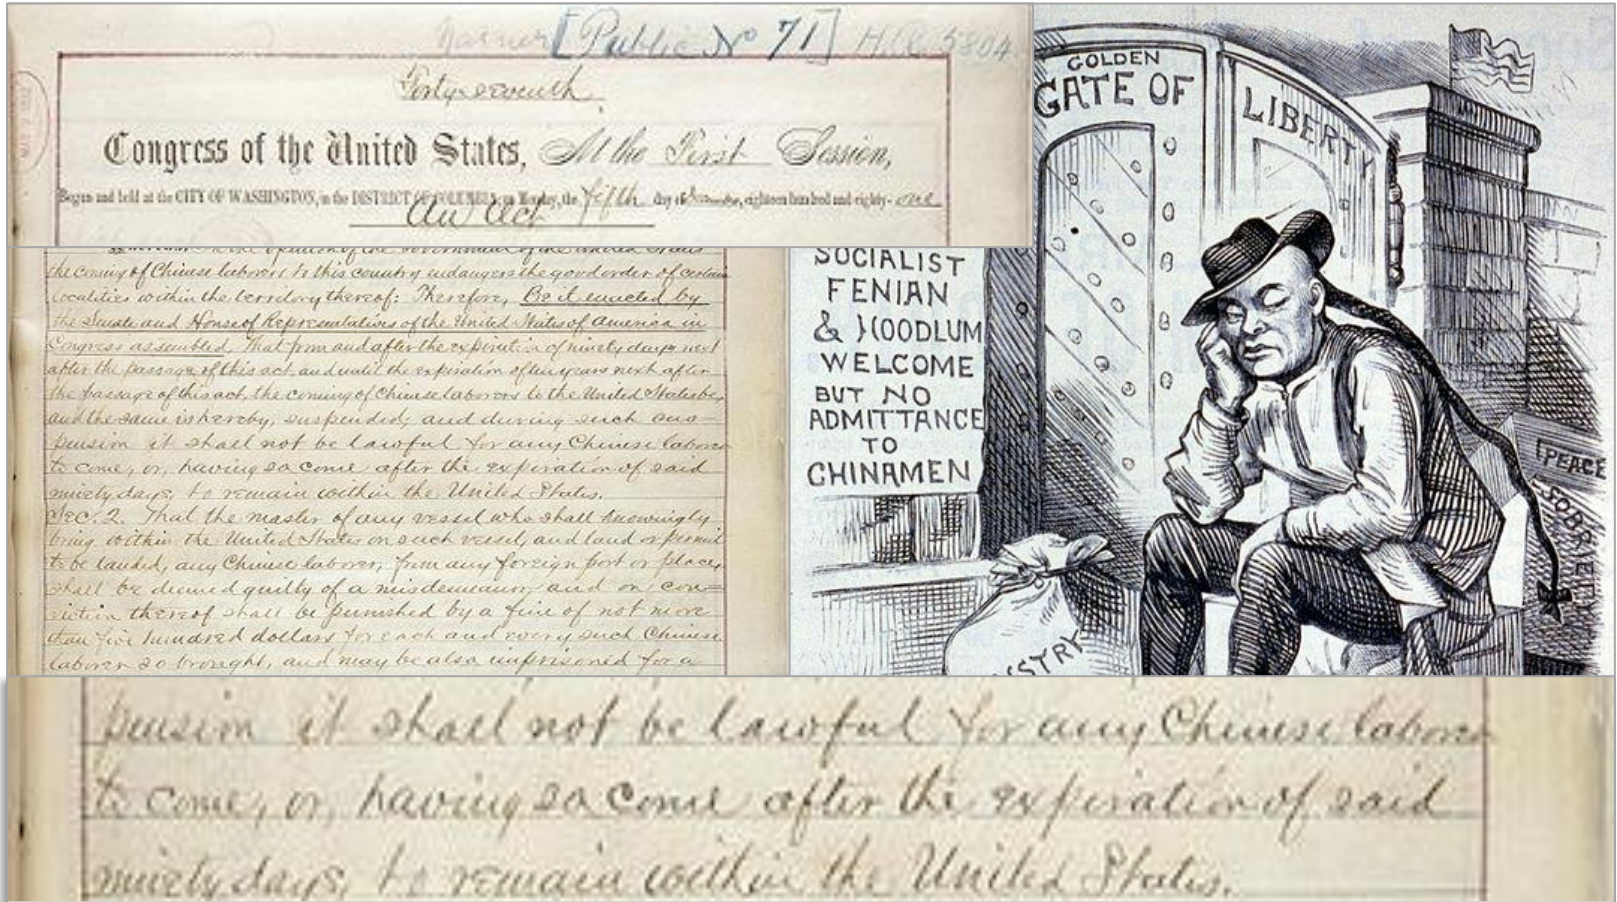 [Public No 71] H.R. 5804.
Forty-seventh
Congress of the United States, At the First Session,
Begun and held at the CITY OF WASHINGTON, in the DISTRICT OF COLUMBIA, on Monday, the fifth day of December, eighteen hundred and eighty-one
An Act
in the opinion of the Government of the United States
the coming of Chinese laborers to this country endangers the good order of certain
localities within the territory thereof: Therefore, Be it enacted by
the Senate and House of Representatives of the United States of America in
Congress assembled, That from and after the expiration of ninety days next
after the passage of this act, and until the expiration of ten years next after
the passage of this act, the coming of Chinese laborers to the United States be,
and the same is hereby, suspended; and during such sus-
pension it shall not be lawful for any Chinese laborer
to come, or, having so come after the expiration of said
ninety days, to remain within the United States.
Sec. 2. That the master of any vessel who shall knowingly
bring within the United States on such vessel, and land or permit
to be landed, any Chinese laborer, from any foreign port or place,
shall be deemed guilty of a misdemeanor, and on con=
viction thereof shall be punished by a fine of not more
than five hundred dollars for each and every such Chinese
laborer so brought, and may be also imprisoned for a
GOLDEN
GATE OF
LIBERTY
SOCIALIST
FENIAN
& HOODLUM
WELCOME
BUT NO
ADMITTANCE
TO
CHINAMEN
PEACE
SOBRIETY
USTRY
pension it shall not be lawful for any Chinese laborer
to come, or, having so come after the expiration of said
ninety days, to remain within the United States.